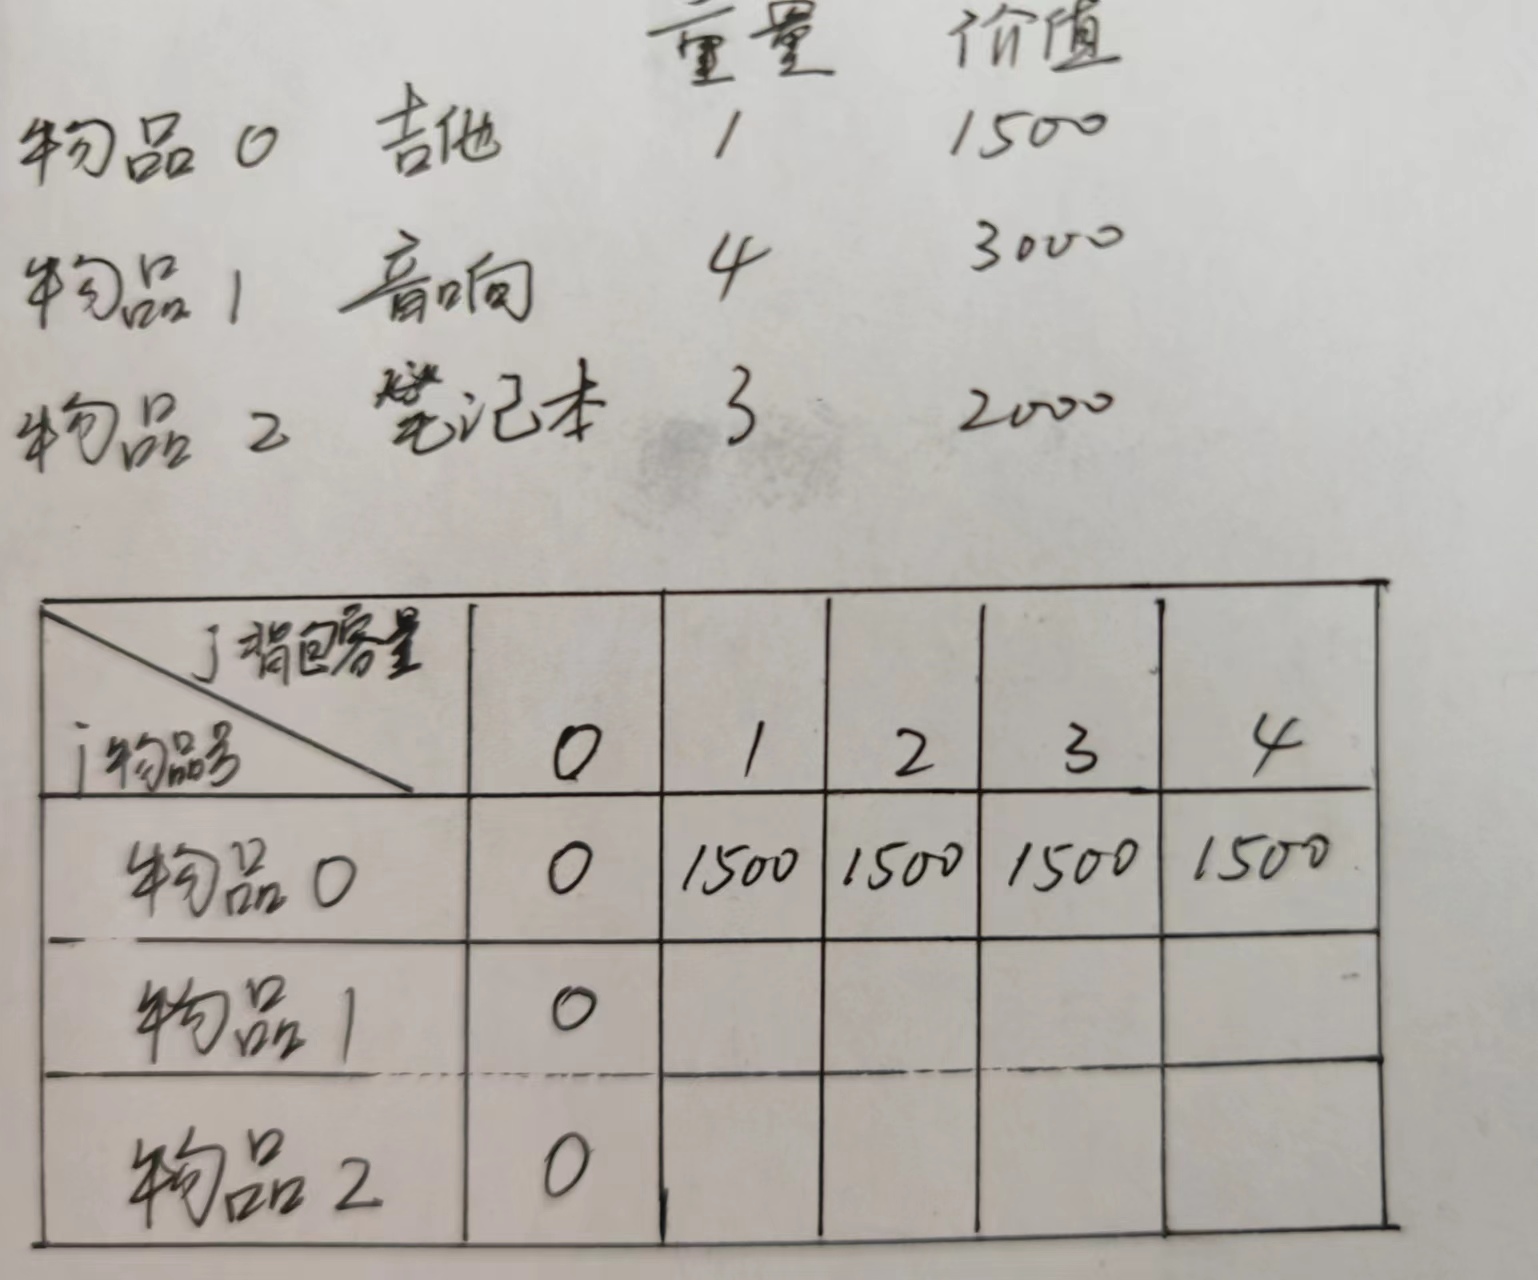 重量 价值
物品 0 吉他 1 1500
物品 1 音响 4 3000
物品 2 笔记本 3 2000
j 背包容量
i 物品号 0 1 2 3 4
物品 0 0 1500 1500 1500 1500
物品 1 0
物品 2 0